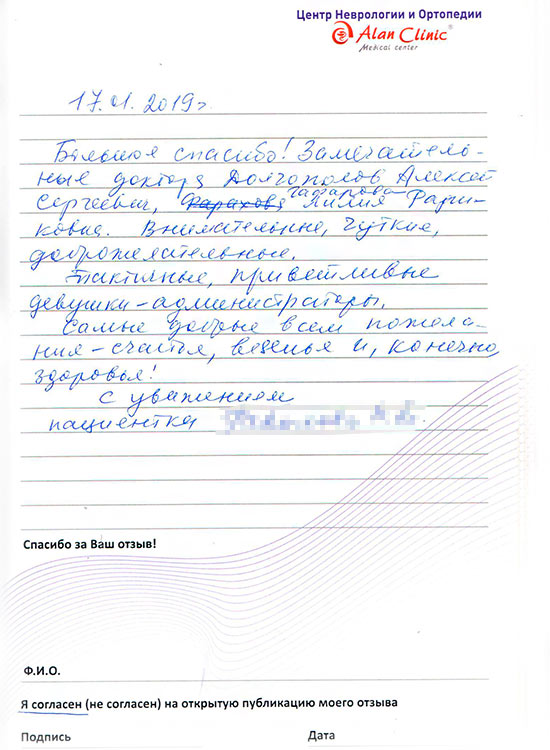 Центр Неврологии и Ортопедии
Alan Clinic®
Medical center
17.01.2019г
Большое спасибо! Замечатель-
ные доктора Долгополов Алексей
Гаффарова
Сергеевич, Лилия Фари-
ковна. Внимательные, чуткие,
доброжелательные.
Тактичные, приветливые
девушки-администраторы.
Самые добрые всем пожела-
ния - счастья, веселья и, конечно,
здоровья!
С уважением
пациентка
Спасибо за Ваш отзыв!
Ф.И.О.
Я согласен (не согласен) на открытую публикацию моего отзыва
Подпись Дата